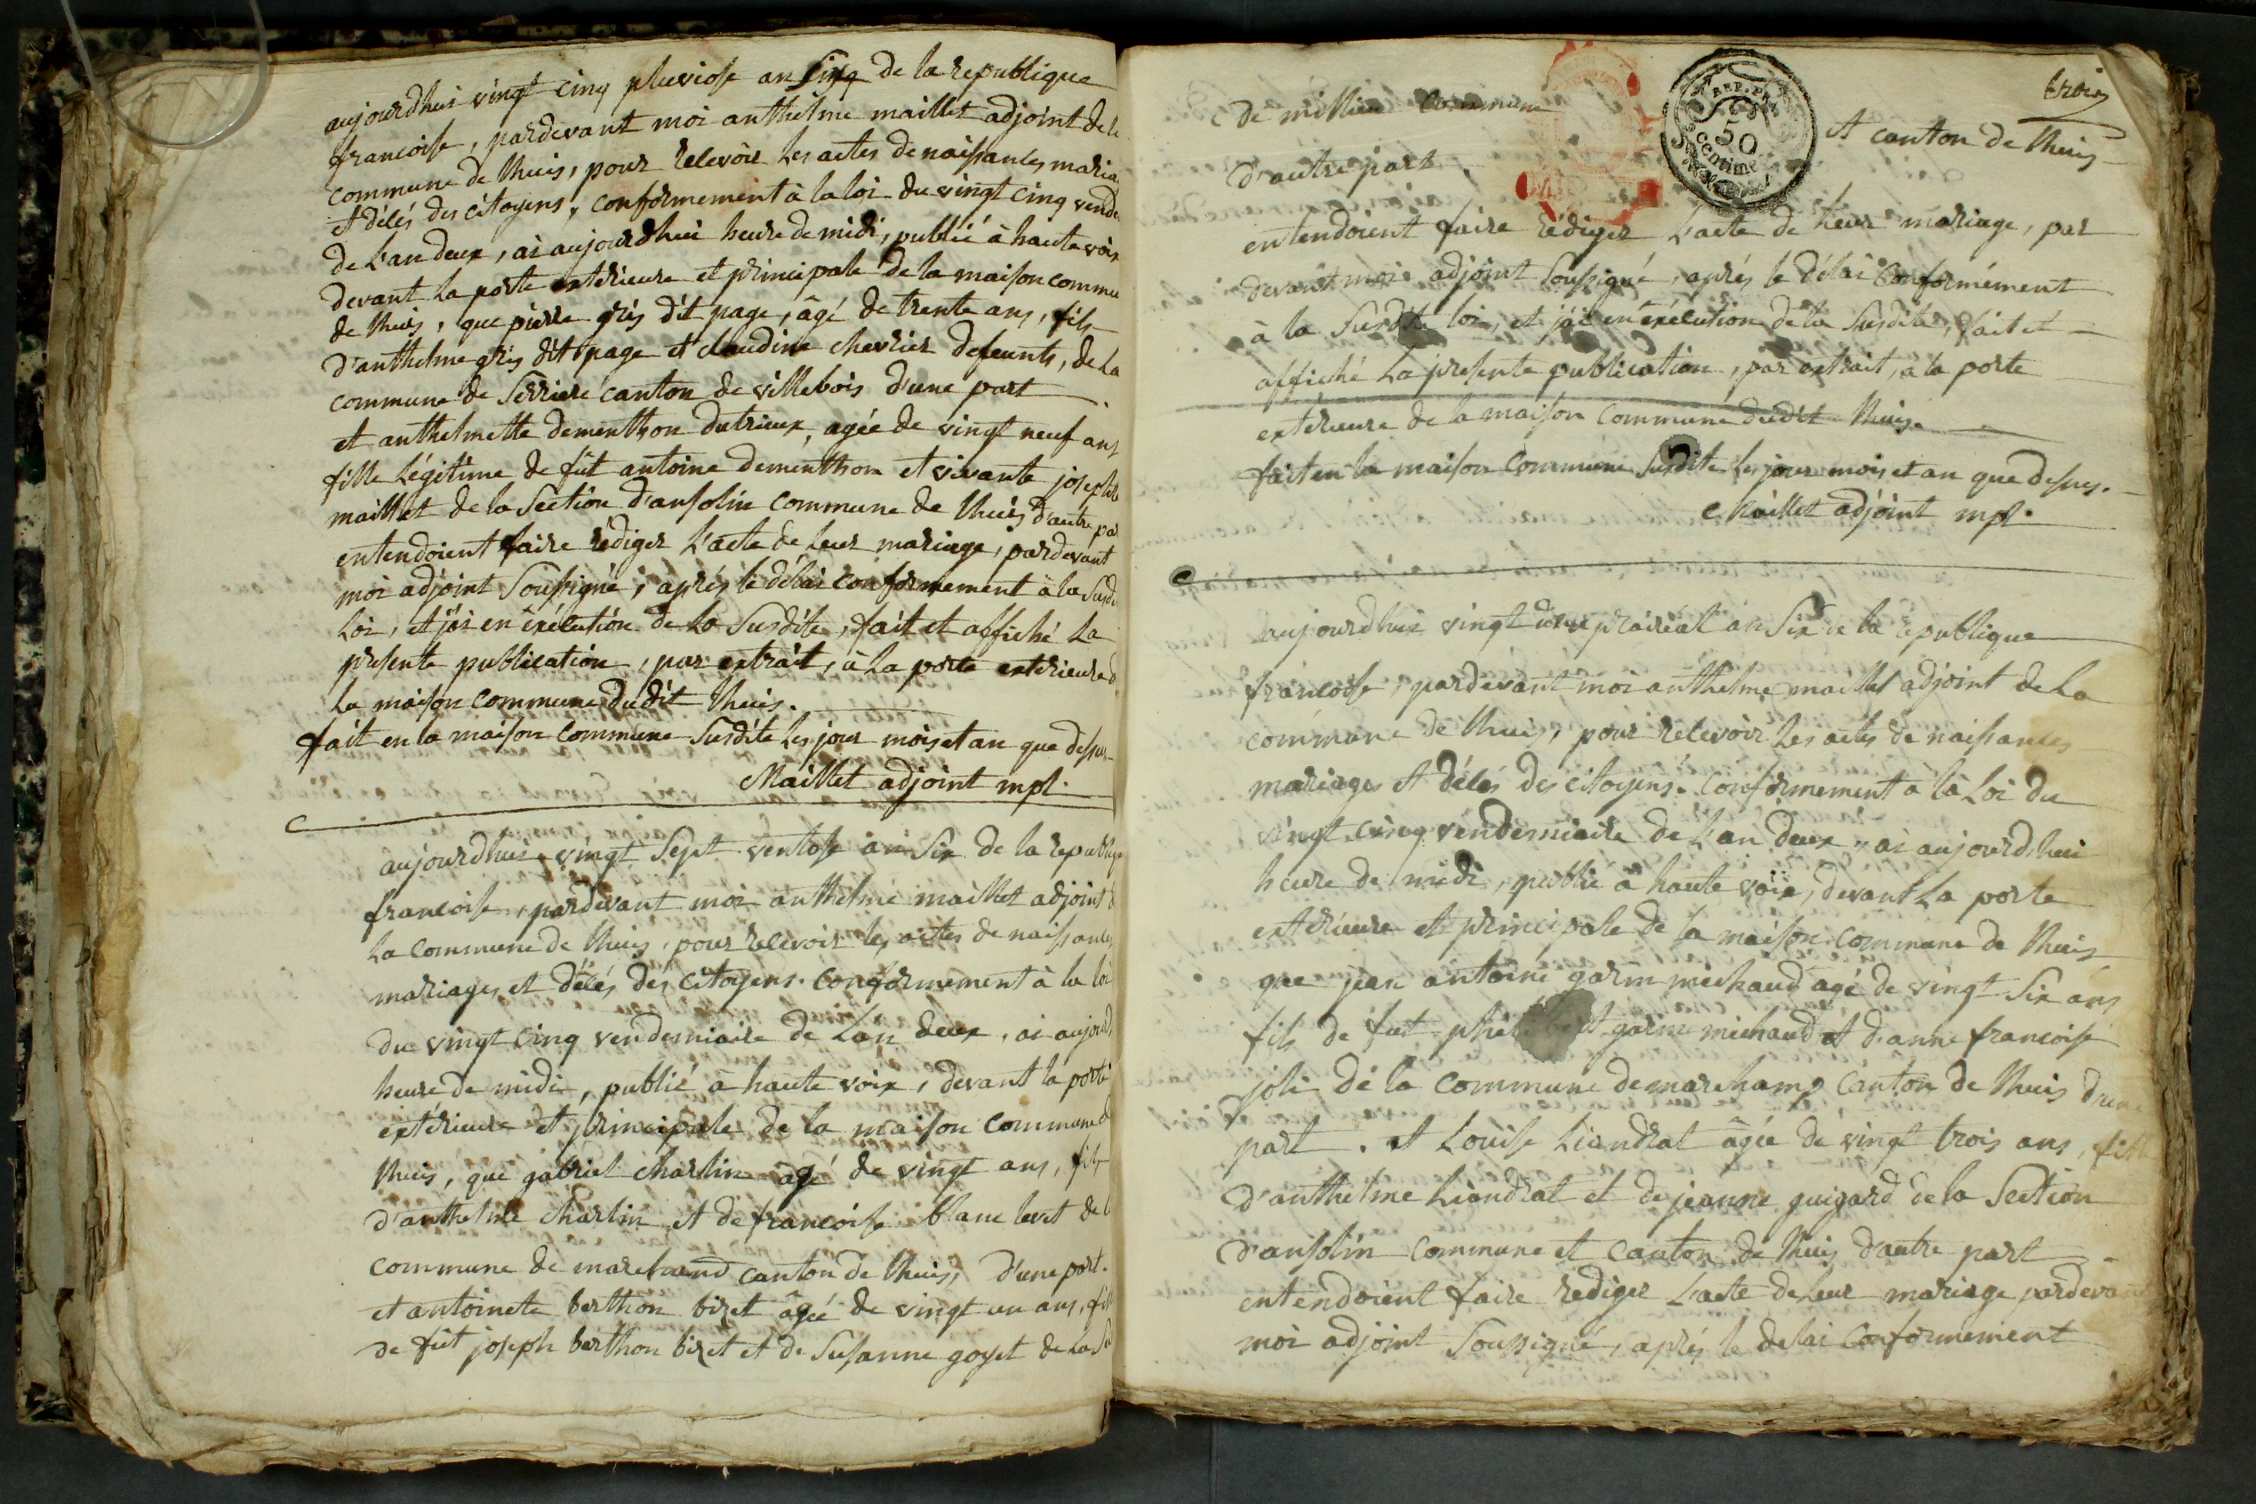 aujourdhui vingt cinq pluviose an Sixq de la republique
francoise, pardevant moi anthelme maillet adjoint de la
commune de lhuis, pour recevoir les actes de naissances, maria
et décés des citoyens, conformement à la loi du vingt cinq vende
de L'an deux, ai aujourdhui heure de midi, publié à haute voix
devant la porte exterieure et principale de la maison commu
de lhuis, que pierre gris dit page, âgé de trente ans, fils
d'anthelme gris dit page et claudine chevrier defeunts, de La
commune de Serriere canton de villebois d'une part
et anthelmette dementhon dutrieux, agée de vingt neuf ans
fille Légitime de fût antoine dementhon et vivante josephte
maillet de la Section d'ansolin commune de lhuis d'autre par
entendoient faire rédiger L'acte de leur mariage, pardevant
moi adjoint Soussigné, aprés le délai conformement à la Susdi
Loi, et j'ai en éxécution de la Susdite, fait et affiché La
presente publication, par extrait, à La porte exterieure d
La maison commune dudit lhuis.
fait en la maison commune Susdite les jour mois et an que dessus
Maillet adjoint mpl.
aujourdhui vingt Sept ventose an Six de la republiq
francoise, pardevant moi anthelme maillet adjoint d
La commune de lhuis, pour recevoir les actes de naissances
mariages et décés des citoyens. conformement à la loi
du vingt cinq vendemiaire de L'an deux, ai aujourd
heure de midi, publié à haute voix, devant la porte
extérieure et principale de la maison commune d
lhuis, que gabriel charlin agé de vingt ans, fils
d'anthelme charlin et de francoise blanc levet de l
commune de marchand canton de lhuis, d'une part.
et antoinete berthon bizet âgée de vingt un ans, fil
de fût joseph berthon bizet et de Susanne goyet de La Se
trois
de millieu commune et canton de lhuis
d'autre part
REP. FRA.
50
centime
entendoient faire rédiger L'acte de leur mariage, par
devant moi adjoint Soussigné, aprés le délai conformément
à la Susdite loi, et j'ai en éxécution de la Susdite, fait et
affiché La presente publication, par extrait, à la porte
extérieure de la maison commune dudit lhuis.
fait en la maison commune Susdite les jour mois et an que dessus.
Maillet adjoint mpl.
aujourdhui vingt prairéal an Six de la république
francoise, pardevant moi anthelme maillet adjoint de La
commune de lhuis, pour recevoir les actes de naissances
mariages et décés des citoyens. conformement à la Loi du
vingt cinq vendemiaire de L'an deux, ai aujourdhui
heure de midi, publié à haute voix, devant La porte
extérieure et principale de la maison commune de lhuis
que jean antoine garin michaud agé de vingt Six ans
fils de fut garin michaud et d'anne francoise
joli de la commune de marchamp canton de lhuis d'une
part. et Louise Liandrat âgée de vingt trois ans, fille
d'anthelme Liandrat et de jeanne guigard de la Section
d'ansolin commune et canton de lhuis d'autre part
entendoient faire rediger L'acte de leur mariage pardevant
moi adjoint Soussigné, aprés le delai conformement